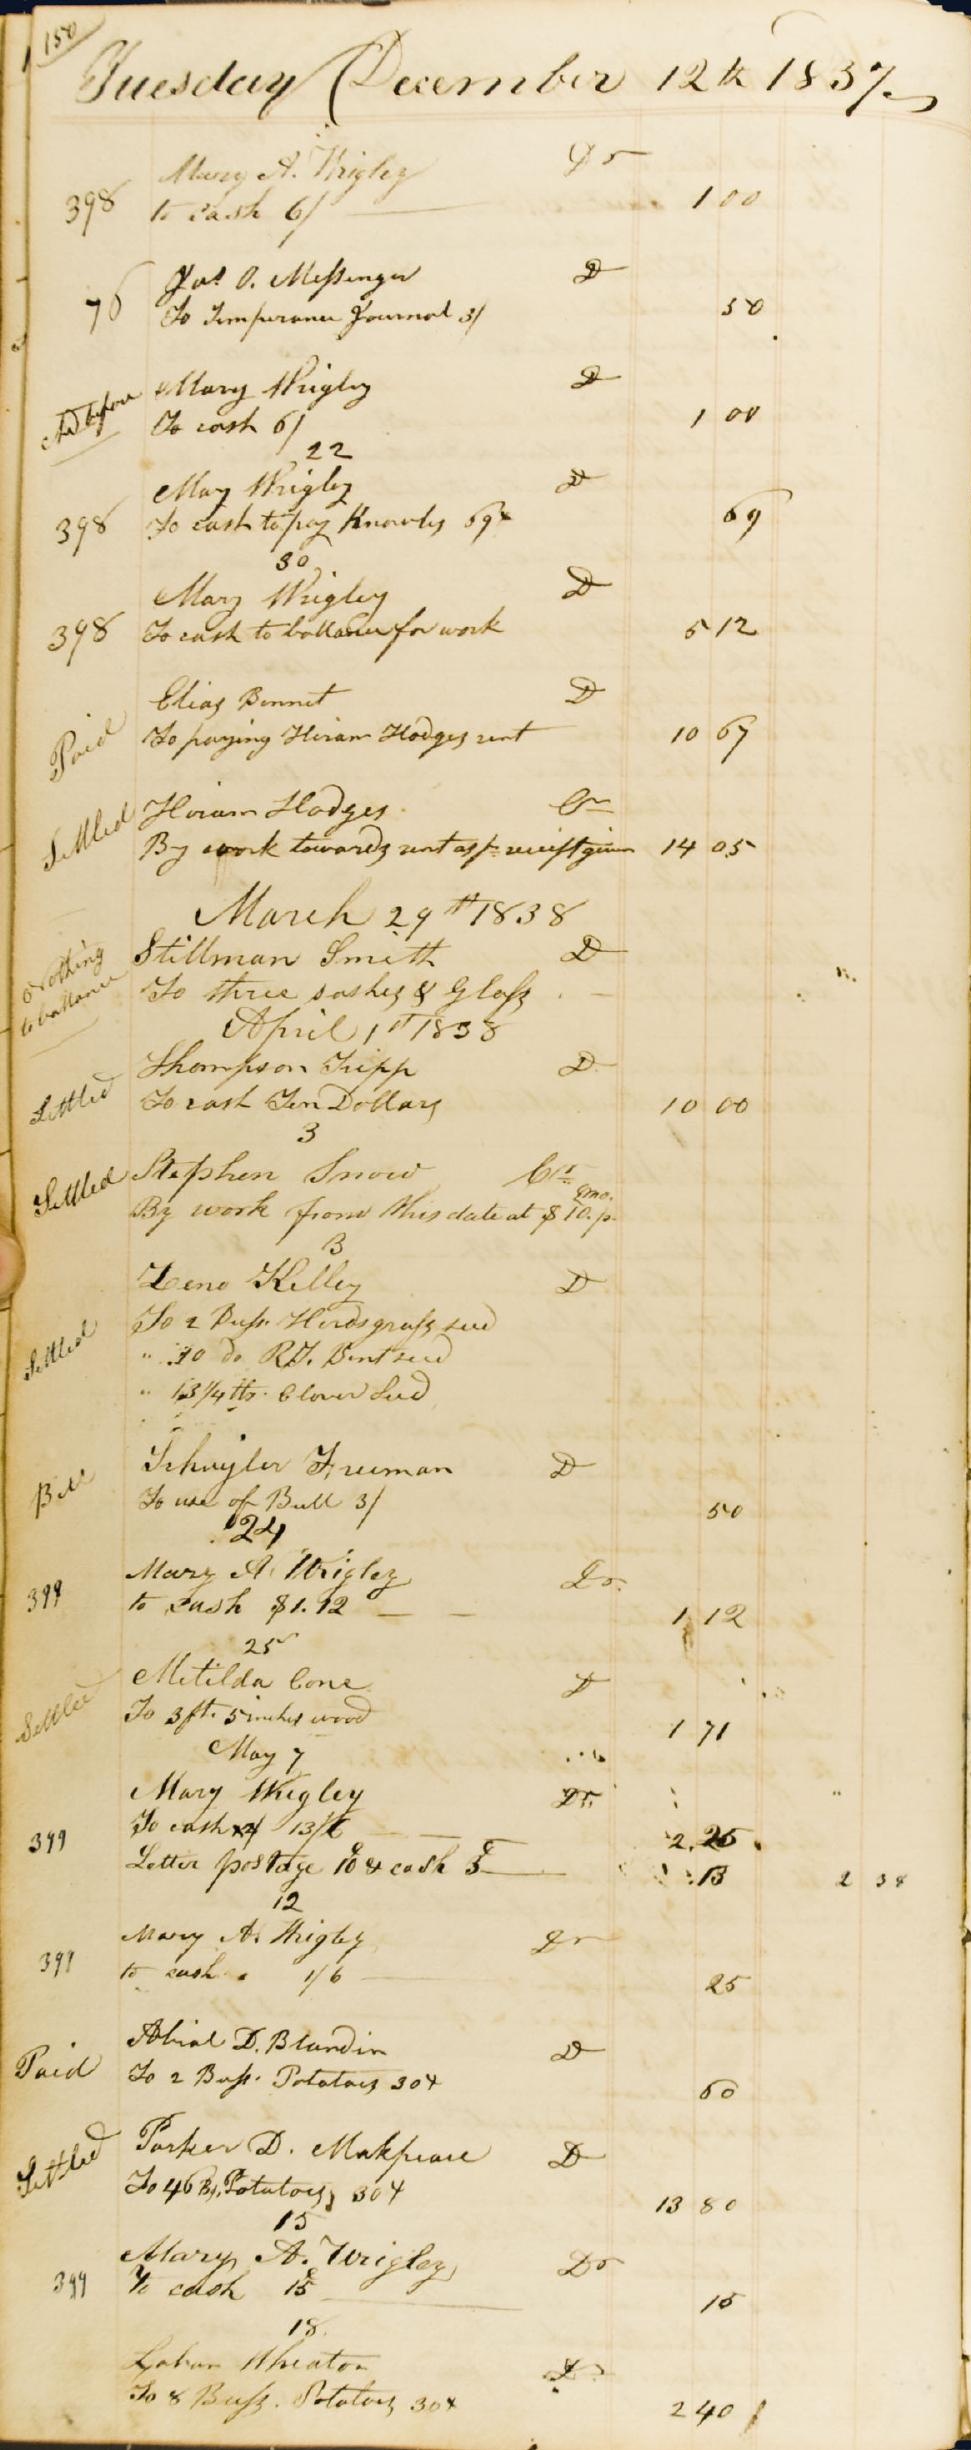 150
Tuesday December 12th 1837
Mary A. Wrigley Dr
398 to cash 6/ 1 00
Jas O. Messenger D
76 To Temperance Journal 3/ 50
Mary Wrigley D
To cash 6/ 1 00
22
Mary Wrigley D
398 To cash to pay Knowles 69 69
30
Mary Wrigley D
398 To cash to ballance for work 5 12
Elias Bonnet D
Paid To paying Hiram Hodges rent 10 67
Hiram Hodges Cr
Settled By work towards rent as pr receipt given 14 05
March 29th 1838
Nothing Stillman Smith D
to ballance To three sashes & Glass
April 1st 1838
Thompson Tripp D
Settled To cash Ten Dollars 10 00
3
Settled Stephen Snow Cr
By work from this date at $10. pr mo.
3
Zeno Kelley D
To 2 Bush Herdsgrass seed
Settled " 10 do R.T. Bent seed
" 13 1/4 lbs. Clover Seed
Schuyler Freeman D
Bill To use of Bull 3/ 50
24
Mary A. Wrigley Dr.
399 to cash $1.12 1 12
25
Metilda Cone D
Settled To 3 ft. 5 inches wood 1 71
May 7
Mary Wrigley Dr.
399 To cash 13/6 2.25
Letter postage 10 & cash 3c 13 2 38
12
Mary A. Wrigley Dr
399 to cash 1/6 25
Abial D. Blandin D
Paid To 2 Bush. Potatoes 30 60
Parker D. Makpeace D
Settled To 46 Bs. Potatoes 30 13 80
15
Mary A. Wrigley Dr
399 To cash 15 15
18.
Laban Wheaton Dr
To 8 Bush. Potatoes 30 2 40